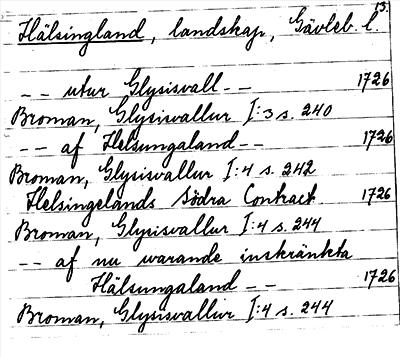 13.
Hälsingland, landskap, Gävleb. l.
-- utur Glysisvall -- 1726
Broman, Glysisvallur I:3 s. 240
-- af Helsungaland -- 1726
Broman, Glysisvallur I:4 s. 242
Helsingelands Södra Contract. 1726
Broman, Glysisvallur I:4 s. 244
-- af nu warande inskränkta
Hälsungaland -- 1726
Broman, Glysisvallur I:4 s. 244